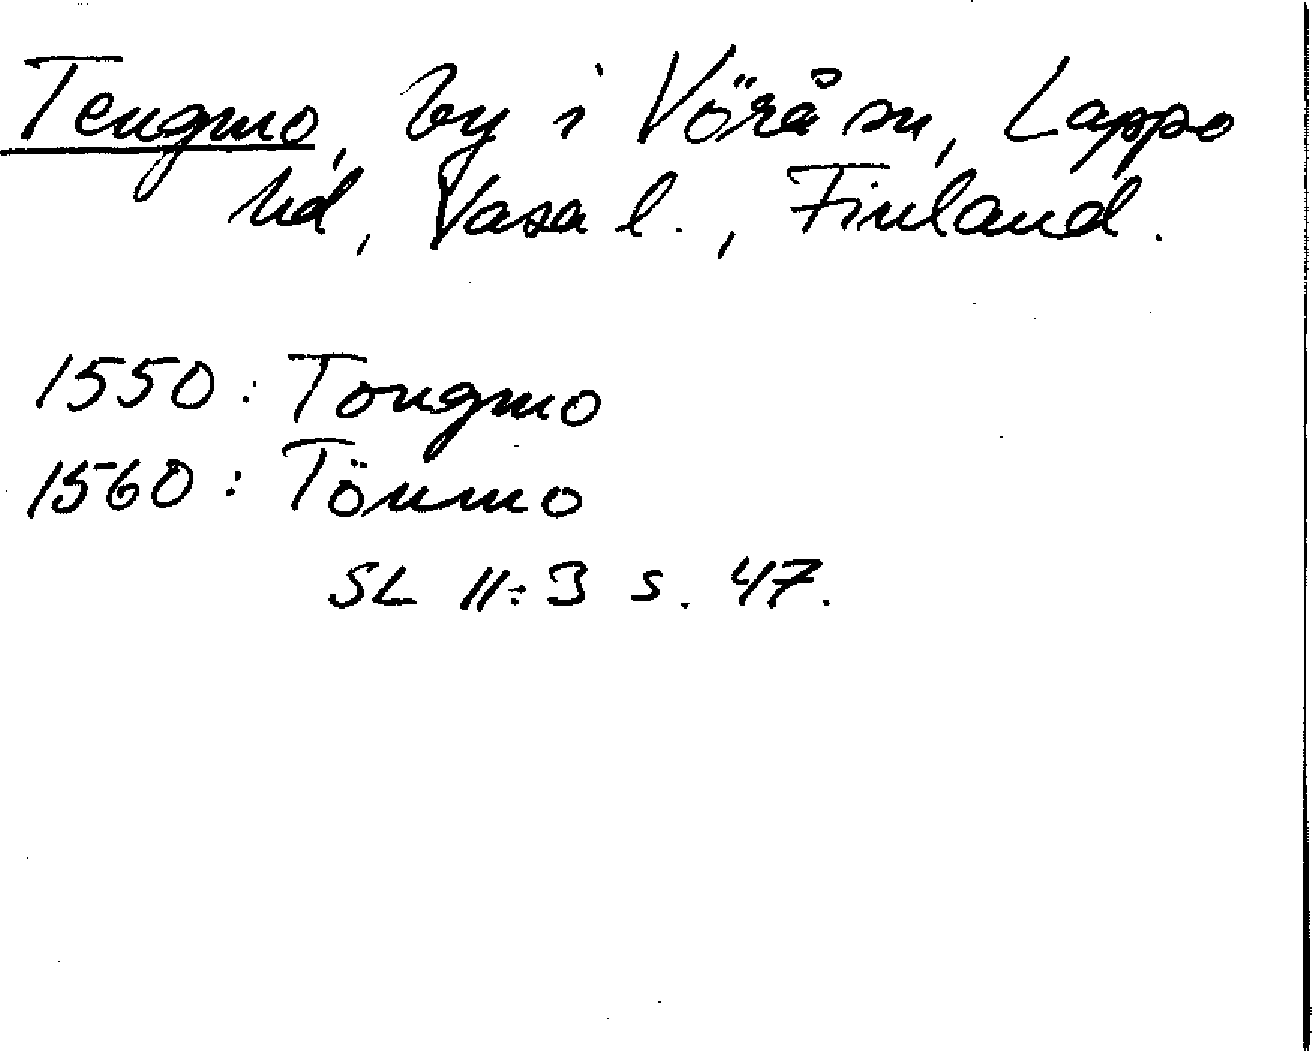 Tengmo, by i Vörå sn, Lappo
hd, Vasa l., Finland.
1550: Tongmo
1560: Tönmo
SL II:3 s. 47.